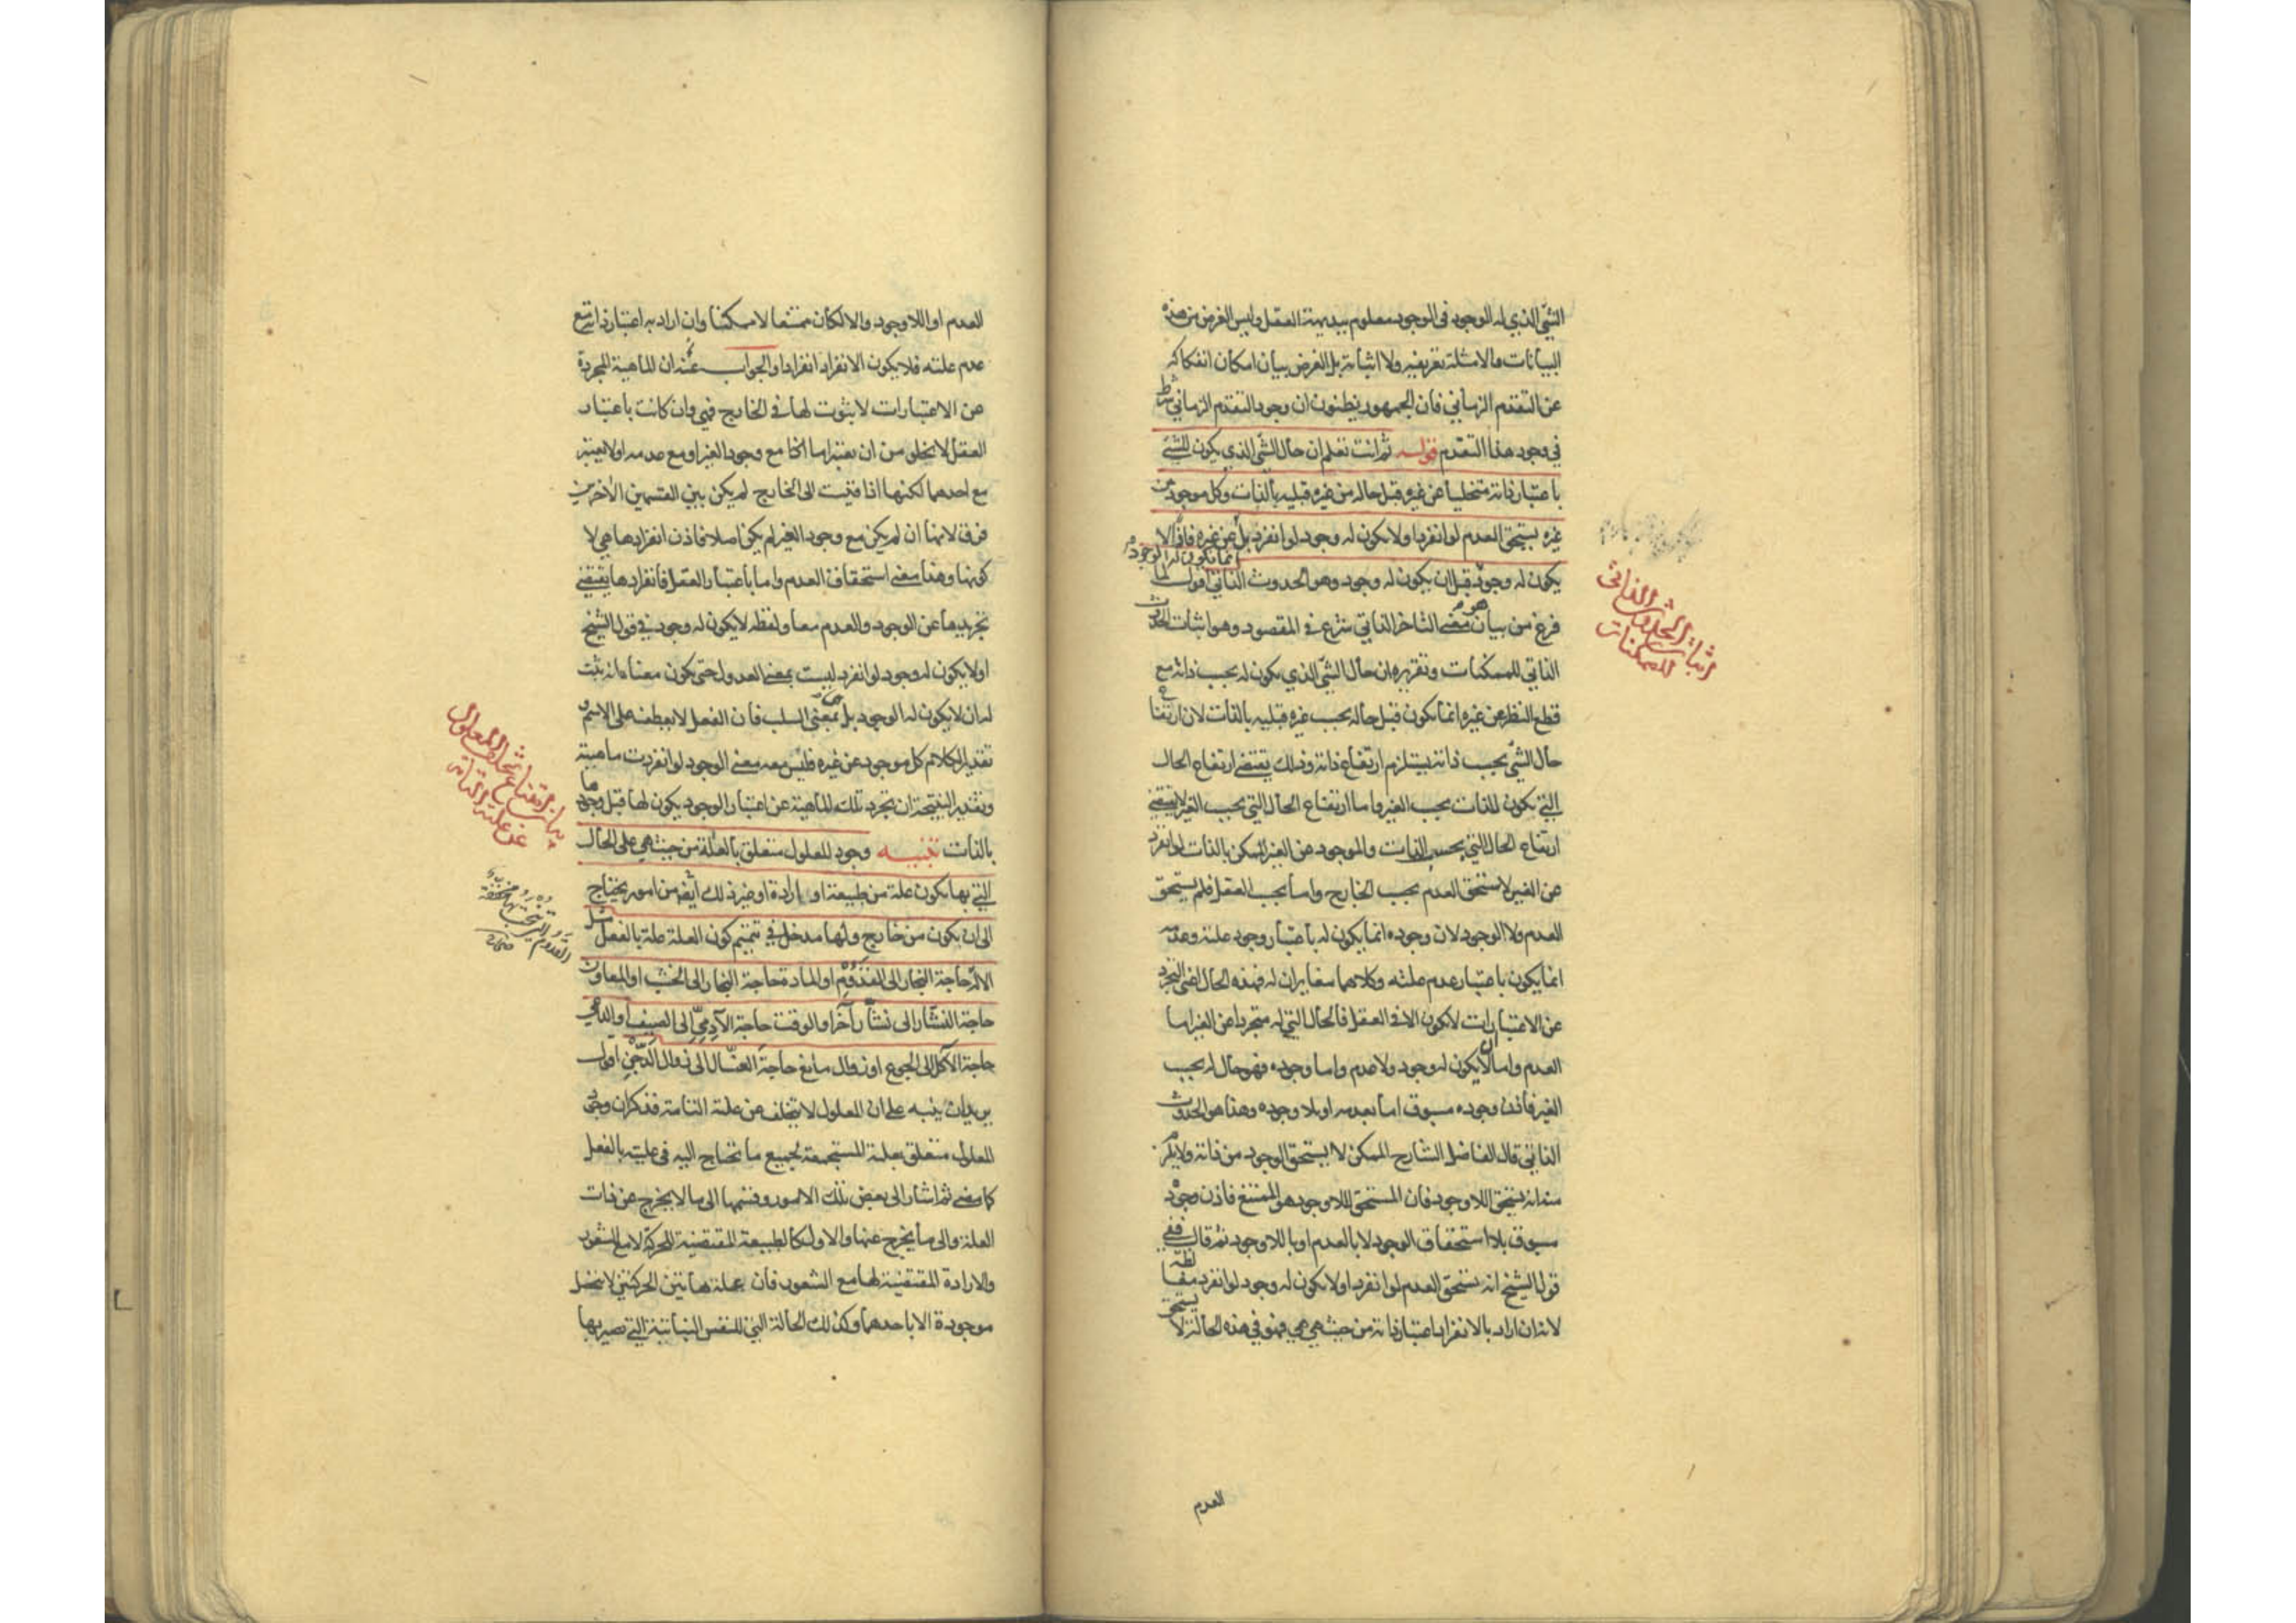 الشئ الذي له الوجود في الوجود معلوم ببديهة العقل وليس الغرض من هذه
البيانات والامثلة تعريفه ولا اثباته بل الغرض بيان امكان انفكاكه
عن التقدم الزماني فان الجمهور يظنون ان وجود التقدم الزماني شرط
في وجود هذا التقدم قوله ثم انت تعلم ان حال الشئ الذي يكون للشئ
باعتبار ذاته متخليا عن غيره قبل حاله من غيره قبلية بالذات وكل موجود عن
غيره يستحق العدم لو انفرد او لا يكون له وجود لو انفرد بل عن غيره فاذا لا
انما يكون له الوجود
يكون له وجود قبل ان يكون له وجود وهو الحدوث الذاتي اقول لما
فرغ من بيان معنى التاخر الذاتي شرع في المقصود وهو اثبات الحدوث
الذاتي للممكنات وتقريره ان حال الشئ الذي يكون له بحسب ذاته مع
قطع النظر عن غيره انما يكون قبل حاله بحسب غيره قبلية بالذات لان ارتفاع
حال الشئ بحسب ذاته يستلزم ارتفاع ذاته وذلك يقتضي ارتفاع الحال
التي يكون للذات بحسب الغير واما ارتفاع الحال التي بحسب الغير لا يقتضي
ارتفاع الحال التي بحسب الذات والموجود عن الغير الممكن بالذات لو انفرد
عن الغير لاستحق العدم بحسب الخارج واما بحسب العقل فلم يستحق
العدم ولا الوجود لان وجوده انما يكون له باعتبار وجود علته وعدمه
انما يكون باعتبار عدم علته وكلاهما مغايران له فهذه الحال اعني التجرد
عن الاعتبارات لا يكون الا في العقل فالحال التي له متجردا عن الغير اما
العدم واما ان لا يكون له وجود ولا عدم واما وجوده فهو حال له بحسب
الغير فاذن وجوده مسبوق اما بعدمه او بلا وجوده وهذا هو الحدوث
الذاتي قال الفاضل الشارح الممكن لا يستحق الوجود من ذاته ولا يلزم
منه انه يستحق اللاوجود فان المستحق للاوجود هو الممتنع فاذن وجوده
مسبوق بلا استحقاق الوجود لا بالعدم او باللاوجود ثم قال ففي
قول الشيخ انه يستحق العدم لو انفرد او لا يكون له وجود لو انفرد مغالطة
لانه ان اراد بالانفراد اعتبار ذاته من حيث هي هي فهو في هذه الحالة لا يستحق
اثبات الحدوث الذاتي
للممكنات
العدم
العدم او اللاوجود والا لكان ممتنعا لا ممكنا وان اراد به اعتبار ذاته مع
عدم علته فلا يكون الانفراد انفرادا والجواب عنه ان الماهية المجردة
عن الاعتبارات لا ثبوت لها في الخارج فهي وان كانت باعتبار
العقل لا يخلو من ان يعتبر اما مع وجود الغير او مع عدمه او لا يعتبر
مع احدهما لكنها اذا قيست الى الخارج لم يكن بين القسمين الاخيرين
فرق لانها ان لم يكن مع وجود الغير لم يكن اصلا فاذن انفرادها هي لا
كونها وهذا معنى استحقاق العدم واما باعتبار العقل فانفرادها يقتضي
تجريدها عن الوجود والعدم معا ولفظه لا يكون له وجود في قول الشيخ
او لا يكون له وجود لو انفرد ليست بمعنى العدول حتى يكون معناه انه يثبت
له ان لا يكون له الوجود بل هي بمعنى السلب فان الفعل لا يعطف على الاسم و
تقدير الكلام كل موجود عن غيره فليس معه معنى الوجود لو انفردت ماهيته
وتقدير النتيجة ان تجرد تلك الماهية عن اعتبار الوجود يكون لها قبل وجودها
بالذات تنبيه وجود المعلول متعلق بالعلة من حيث هي على الحال
التي بها يكون علة من طبيعة او ارادة او غير ذلك ايضا من امور يحتاج
الى ان يكون من خارج ولها مدخل في تتميم كون العلة علة بالفعل مثل
الآلة حاجة النجار الى القدوم او المادة حاجة النجار الى الخشب او المعاون
حاجة النشار الى نشار آخر او الوقت حاجة الآدمي الى الصيف او الداعي
حاجة الآكل الى الجوع او زوال مانع حاجة الغسال الى زوال الدجن اقول
يريد ان ينبه على ان المعلول لا يتخلف عن علته التامة فذكر ان وجود
المعلول متعلق بعلته المستجمعة لجميع ما تحتاج اليه في عليته بالفعل
كما مضى ثم اشار الى بعض تلك الامور وقسمها الى ما لا يخرج عن ذات
العلة والى ما يخرج عنها والاول كالطبيعة المقتضية للحركة لا مع الشعور
والارادة المقتضية لها مع الشعور فان علة هاتين الحركتين لا تحصل
موجودة الا باحدهما وكذلك الحالة التي للنفس النباتية التي تصير بها
بيان امتناع تخلف المعلول
عن علته التامة
القدوم التي ينحت بها مخففة
صحاح